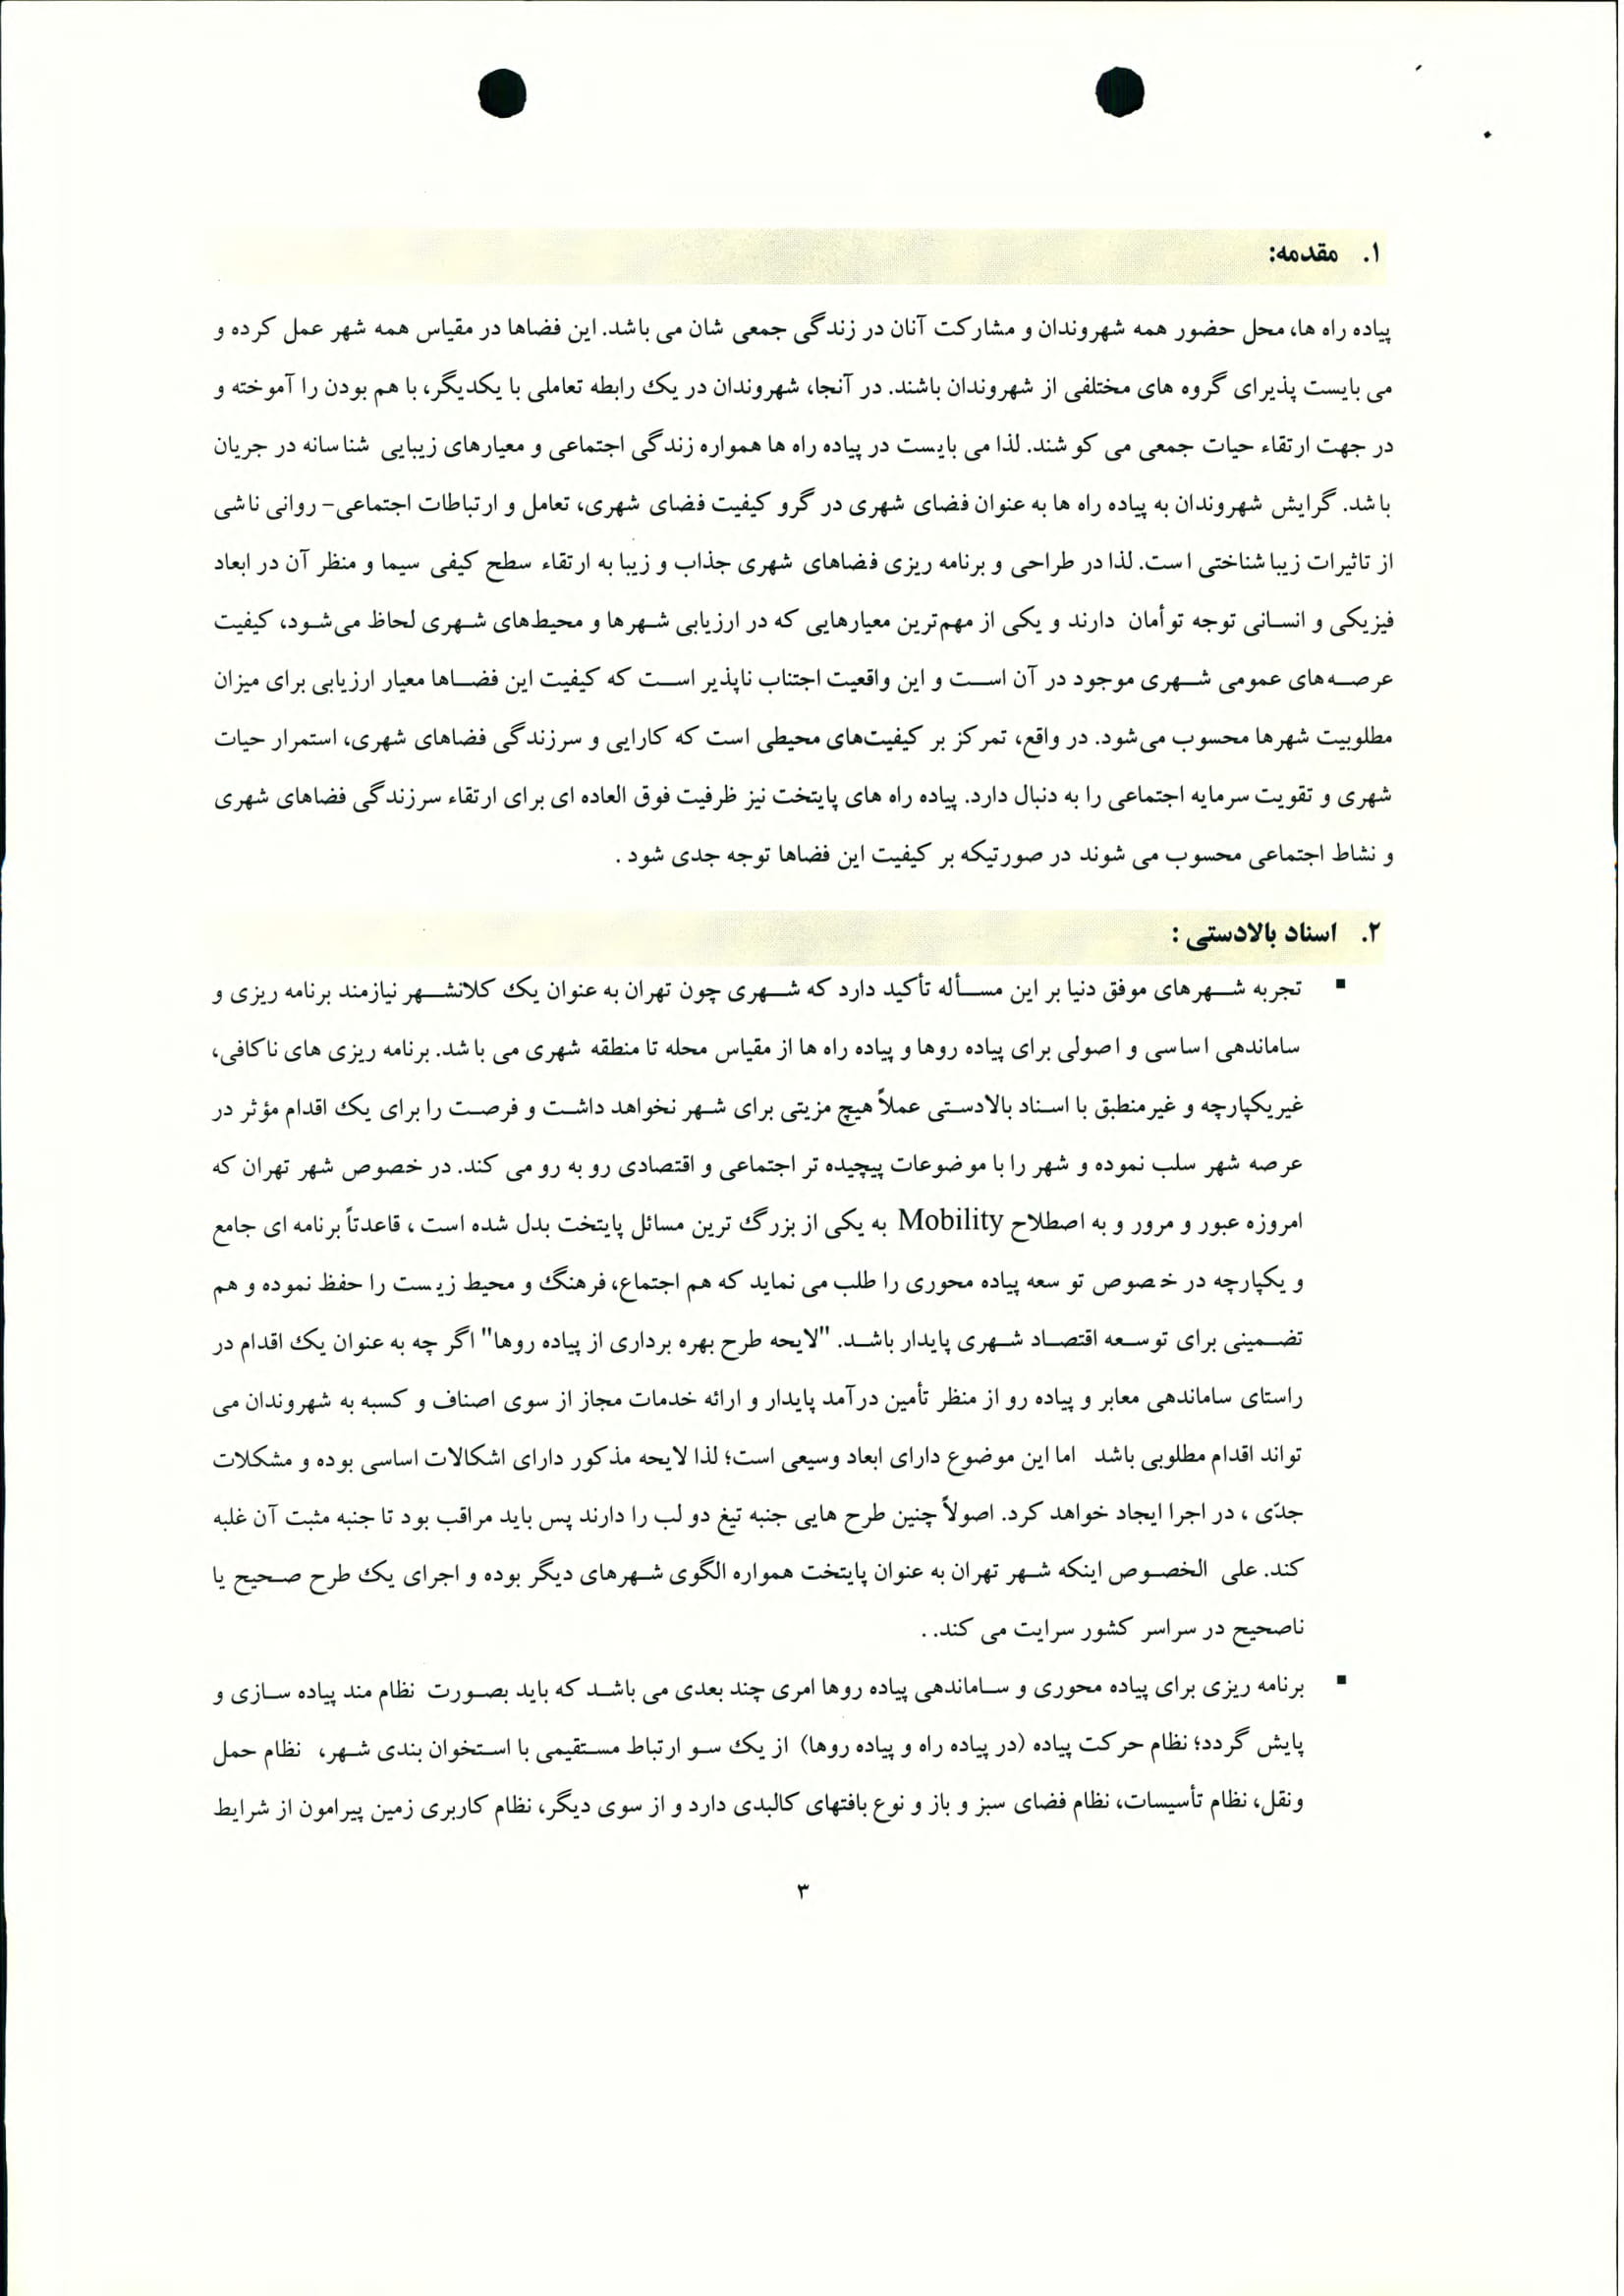 ۱. مقدمه:
پیاده راه ها، محل حضور همه شهروندان و مشارکت آنان در زندگی جمعی شان می باشد. این فضاها در مقیاس همه شهر عمل کرده و
می بایست پذیرای گروه های مختلفی از شهروندان باشند. در آنجا، شهروندان در یک رابطه تعاملی با یکدیگر، با هم بودن را آموخته و
در جهت ارتقاء حیات جمعی می کوشند. لذا می بایست در پیاده راه ها همواره زندگی اجتماعی و معیارهای زیبایی شناسانه در جریان
باشد. گرایش شهروندان به پیاده راه ها به عنوان فضای شهری در گرو کیفیت فضای شهری، تعامل و ارتباطات اجتماعی- روانی ناشی
از تاثیرات زیباشناختی است. لذا در طراحی و برنامه ریزی فضاهای شهری جذاب و زیبا به ارتقاء سطح کیفی سیما و منظر آن در ابعاد
فیزیکی و انسانی توجه توأمان دارند و یکی از مهم‌ترین معیارهایی که در ارزیابی شهرها و محیط‌های شهری لحاظ می‌شود، کیفیت
عرصه‌های عمومی شهری موجود در آن است و این واقعیت اجتناب ناپذیر است که کیفیت این فضاها معیار ارزیابی برای میزان
مطلوبیت شهرها محسوب می‌شود. در واقع، تمرکز بر کیفیت‌های محیطی است که کارایی و سرزندگی فضاهای شهری، استمرار حیات
شهری و تقویت سرمایه اجتماعی را به دنبال دارد. پیاده راه های پایتخت نیز ظرفیت فوق العاده ای برای ارتقاء سرزندگی فضاهای شهری
و نشاط اجتماعی محسوب می شوند در صورتیکه بر کیفیت این فضاها توجه جدی شود .
۲. اسناد بالادستی :
▪ تجربه شهرهای موفق دنیا بر این مسأله تأکید دارد که شهری چون تهران به عنوان یک کلانشهر نیازمند برنامه ریزی و
ساماندهی اساسی و اصولی برای پیاده روها و پیاده راه ها از مقیاس محله تا منطقه شهری می باشد. برنامه ریزی های ناکافی،
غیریکپارچه و غیرمنطبق با اسناد بالادستی عملاً هیچ مزیتی برای شهر نخواهد داشت و فرصت را برای یک اقدام مؤثر در
عرصه شهر سلب نموده و شهر را با موضوعات پیچیده تر اجتماعی و اقتصادی رو به رو می کند. در خصوص شهر تهران که
امروزه عبور و مرور و به اصطلاح Mobility به یکی از بزرگ ترین مسائل پایتخت بدل شده است ، قاعدتاً برنامه ای جامع
و یکپارچه در خصوص توسعه پیاده محوری را طلب می نماید که هم اجتماع، فرهنگ و محیط زیست را حفظ نموده و هم
تضمینی برای توسعه اقتصاد شهری پایدار باشد. "لایحه طرح بهره برداری از پیاده روها" اگر چه به عنوان یک اقدام در
راستای ساماندهی معابر و پیاده رو از منظر تأمین درآمد پایدار و ارائه خدمات مجاز از سوی اصناف و کسبه به شهروندان می
تواند اقدام مطلوبی باشد اما این موضوع دارای ابعاد وسیعی است؛ لذا لایحه مذکور دارای اشکالات اساسی بوده و مشکلات
جدّی ، در اجرا ایجاد خواهد کرد. اصولاً چنین طرح هایی جنبه تیغ دو لب را دارند پس باید مراقب بود تا جنبه مثبت آن غلبه
کند. علی الخصوص اینکه شهر تهران به عنوان پایتخت همواره الگوی شهرهای دیگر بوده و اجرای یک طرح صحیح یا
ناصحیح در سراسر کشور سرایت می کند. .
▪ برنامه ریزی برای پیاده محوری و ساماندهی پیاده روها امری چند بعدی می باشد که باید بصورت نظام مند پیاده سازی و
پایش گردد؛ نظام حرکت پیاده (در پیاده راه و پیاده روها) از یک سو ارتباط مستقیمی با استخوان بندی شهر، نظام حمل
ونقل، نظام تأسیسات، نظام فضای سبز و باز و نوع بافتهای کالبدی دارد و از سوی دیگر، نظام کاربری زمین پیرامون از شرایط
۳